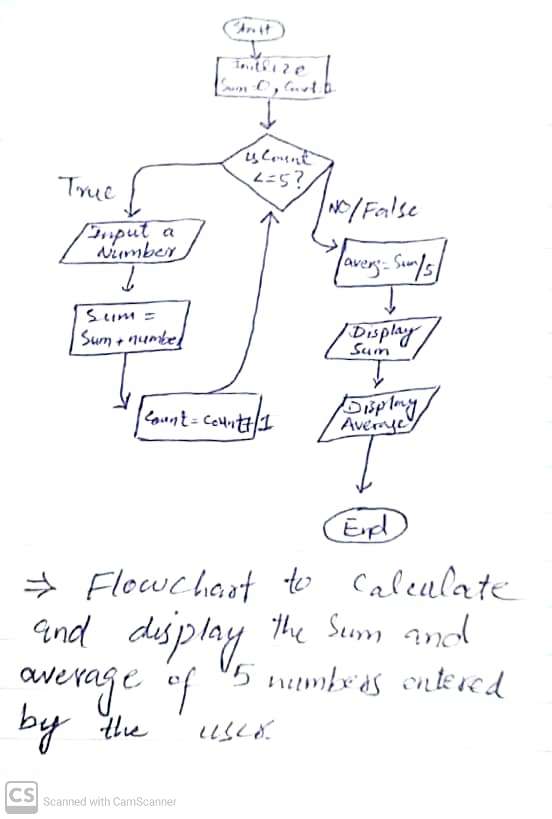 Start
Initilize
Sum=0, Count=1
is Count
<=5?
True
NO/False
Input a
Number
Sum =
Sum + number
Count = Count+1
averg = Sum/5
Display
Sum
Display
Average
End
⇒ Flowchart to Calculate
and display the Sum and
average of 5 numbers entered
by the user.
CS Scanned with CamScanner